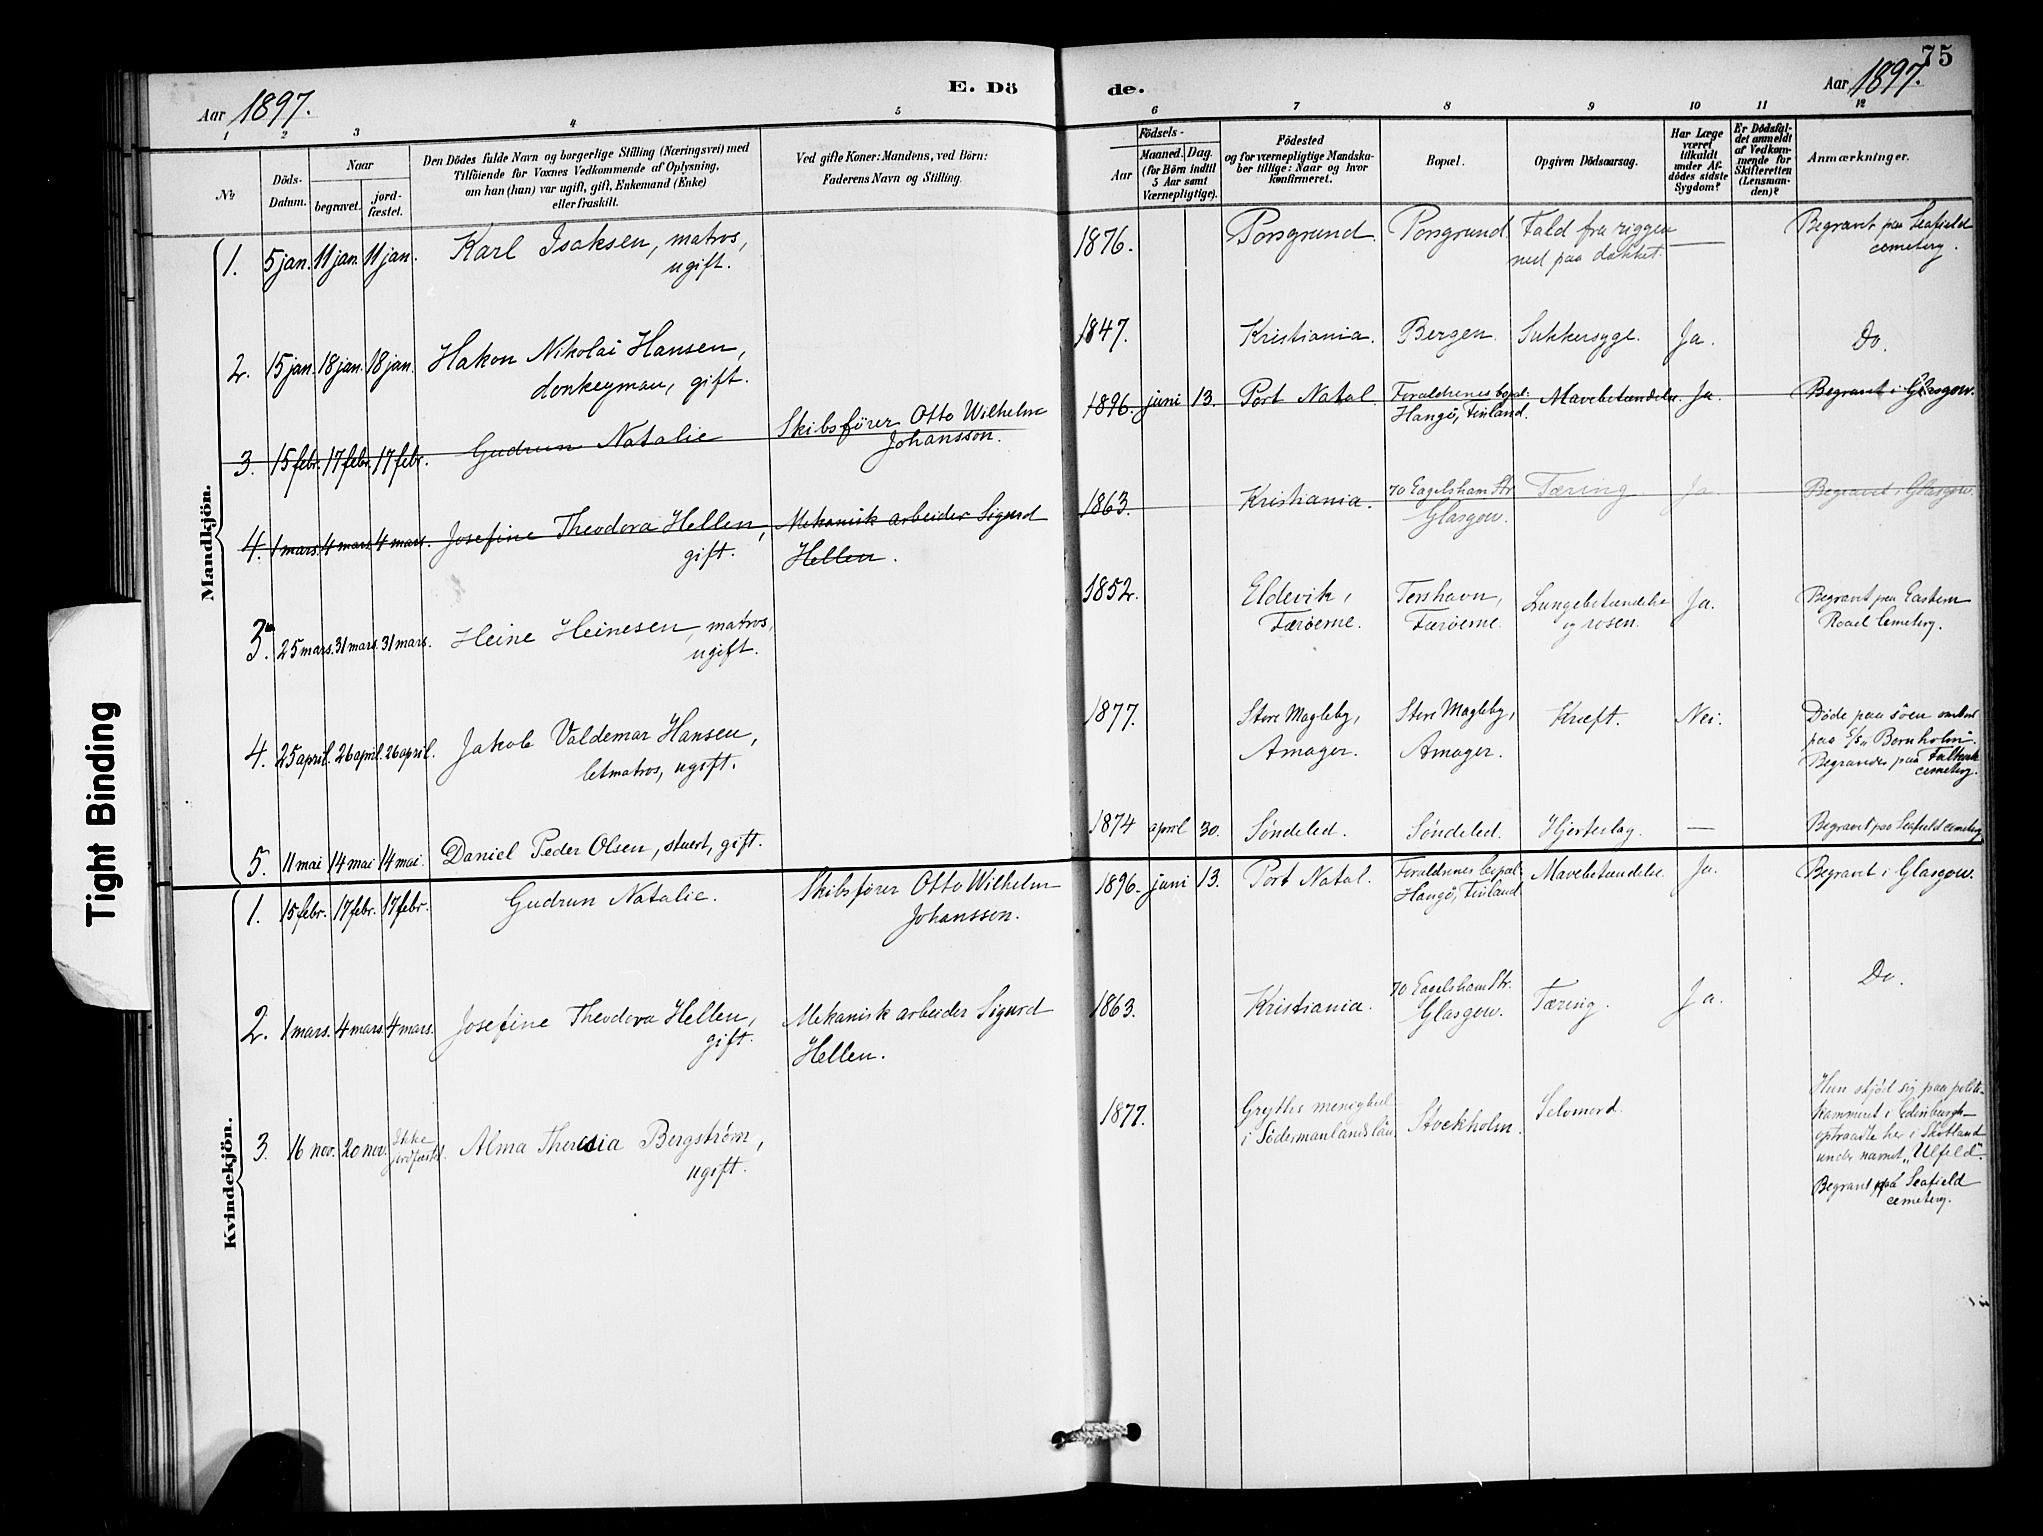 75
Aar 1897.
E. Dö
de.
Aar 1897.
1 2 3 4 5 6 7 8 9 10 11 12
No
Döds-
Datum.
Naar
begravet.
jord-
fæstet.
Den Dödes fulde Navn og borgerlige Stilling (Næringsvei) med
Tilföiende for Voxnes Vedkommende af Oplysning,
om han (hun) var ugift, gift, Enkemand (Enke)
eller fraskilt.
Ved gifte Koner: Mandens, ved Börn:
Faderens Navn og Stilling.
Födsels-
Aar
Maaned.
Dag.
(for Börn indtil
5 Aar samt
Værnepligtige).
Födested
og for værnepligtige Mandska-
ber tillige: Naar og hvor
konfirmeret.
Bopæl.
Opgiven Dödsaarsag.
Har Læge
været
tilkaldt
under Af-
dödes sidste
Sygdom?
Er Dödsfal-
det anmeldt
af Vedkom-
mende for
Skifteretten
(Lensman-
den)?
Anmærkninger.
Mandkjön.
1. 5 jan. 11 jan. 11 jan. Karl Isaksen, matros,
ugift.
1876. Porsgrund. Porsgrund. Fald fra riggen
ned paa dækket. —
Begravet paa Seafield
cemetery.
2. 15 jan. 18 jan. 18 jan. Hakon Nikolai Hansen,
donkeyman, gift.
1847. Kristiania. Bergen. Sukkersyge. Ja. Do.
3. 15 febr. 17 febr. 17 febr. Gudrun Natalie
Skibsfører Otto Wilhelm
Johansson.
1896. juni 13. Port Natal. Forældrenes bopæl:
Hangö, Finland. Mavebetændelse. Ja. Begravet i Glasgow.
4. 1 mars. 4 mars. 4 mars. Josefine Theodora Hellen,
gift.
Mekanisk arbeider Sigurd
Hellen.
1863. Kristiania. 70 Eagelsham Str.
Glasgow. Tæring. Ja. Begravet i Glasgow.
3. 25 mars. 31 mars. 31 mars. Heine Heinesen, matros,
ugift.
1852. Eldevik,
Færöerne.
Torshavn,
Færöerne.
Lungebetændelse
og rosen. Ja.
Begravet paa Eastern
Road Cemetery.
4. 25 april. 26 april. 26 april. Jakob Valdemar Hansen,
letmatros, ugift.
1877. Store Magleby,
Amager.
Store Magleby,
Amager.
Kræft. Nei.
Døde paa søen ombord
paa S/S „Bornholm“.
Begravedes paa Falkirk
cemetery.
5. 11 mai 14 mai 14 mai. Daniel Peder Olsen, stuert, gift.
1874 april 30. Søndeled. Søndeled. Hjerteslag. — Begravet paa Seafield cemetery
Kvindekjön.
1. 15 febr. 17 febr. 17 febr. Gudrun Natalie.
Skibsfører Otto Wilhelm
Johansson.
1896. juni 13. Port Natal. Forældrenes bopæl
Hangö, Finland Mavebetændelse. Ja. Begravet i Glasgow.
2. 1 mars. 4 mars. 4 mars. Josefine Theodora Hellen,
gift.
Mekanisk arbeider Sigurd
Hellen.
1863. Kristiania. 70 Eagelsham Str.
Glasgow. Tæring. Ja. Do.
3. 16 nov. 20 nov. Ikke
jordfæstet. Alma Theresia Bergstrøm,
ugift.
1877. Gryths menighed
i Södermanlands län. Stockholm. Selvmord.
Hun skjød sig paa politi-
kammeret i Edinburgh-
optraadte her i Skotland
under navnet „Ulfeld“.
Begravet paa Seafield
cemetery.
Tight Binding